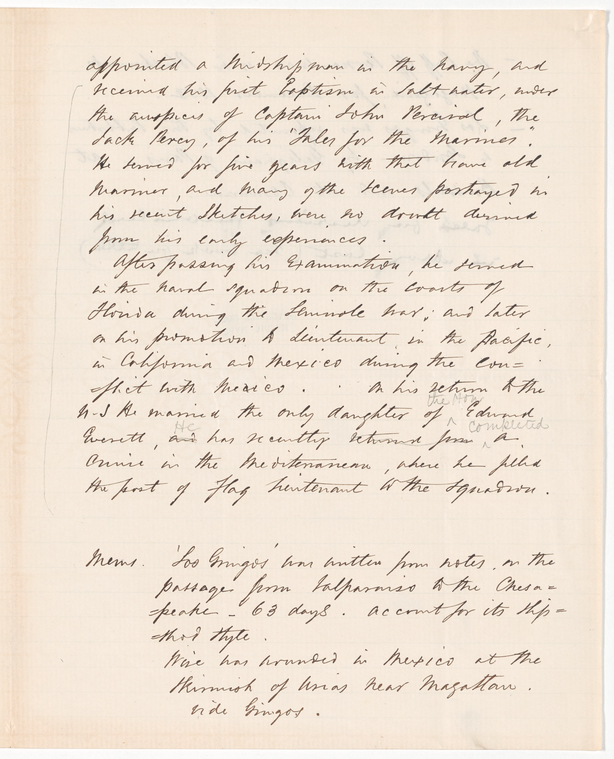 appointed a Midshipman in the Navy, and
received his first Baptism in Salt water, under
the auspices of Captain John Percival, the
Jack Percy, of his "Tales for the Marines".
He served for five years with that brave old
Mariner, and many of the scenes portrayed in
his recent Sketches, were no doubt derived
from his early experiences.
After passing his Examination, he served
in the naval squadron on the coasts of
Florida during the Seminole War; and later
on his promotion to Lieutenant, in the Pacific,
in California and Mexico during the Con=
=flict with Mexico. On his return to the
U-S He married the only daughter of ^ the Hon Edward
Everett, and He has recently returned from ^ completed a
Cruise in the Mediterranean, where he filled
the post of Flag Lieutenant to the Squadron.
Mems. 'Los Gringos' was written from notes, on the
passage from Valparaiso to the Chesa=
=peake - 63 days. Account for its slip=
=shod style.
Wise was wounded in Mexico at the
Skirmish of Urias near Mazattan.
vide Gringos.